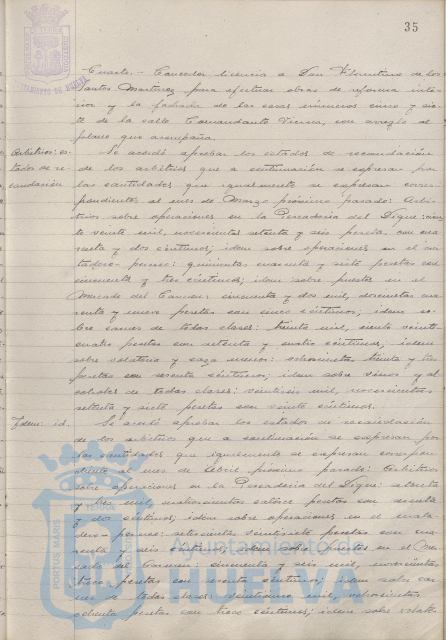 35
Cuarto.- Conceder licencia a Don Florentino de los
Santos Martínez para efectuar obras de reforma inte-
rior y la fachada de las casas números cinco y sie-
te de la calle Comandante Vierna, con arreglo al
plano que acompaña.
Arbitrios: es-
tados de re-
caudación
Se acordó aprobar los estados de recaudación
de los arbitrios que a continuación se expresan por
las cantidades que igualmente se expresan corres-
pondientes al mes de Marzo próximo pasado: Arbi-
trios sobre operaciones en la Pescadería del Dique:
te veinte mil, novecientas setenta y seis pesetas con cua-
renta y dos céntimos; idem sobre operaciones en el ma-
tadero- quinientas cuarenta y siete pesetas con
cincuenta y tres céntimos; idem sobre puestos en el
Mercado del Carmen: cincuenta y dos mil, doscientas cua-
renta y nueve pesetas con cinco céntimos; idem so-
bre carnes de todas clases: treinta mil, ciento veinti-
cuatro pesetas con setenta y cuatro céntimos; idem
sobre volatería y caza menor: ochocientas treinta y tres
pesetas con sesenta céntimos; idem sobre vinos y al-
coholes de todas clases: veintiséis mil, novecientas
setenta y siete pesetas con veinte céntimos.
Idem: id.
Se acordó aprobar los estados de recaudación
de los arbitrios que a continuación se expresan por
las cantidades que igualmente se expresan correspon-
diente al mes de Abril próximo pasado: Arbitrios
sobre operaciones en la Pescadería del Dique: ochenta
y tres mil, cuatrocientas catorce pesetas con
y dos céntimos; idem sobre operaciones en el mata-
dero- setecientas veintisiete pesetas con cua-
renta y seis céntimos; idem sobre puestos en el Mer-
cado del Carmen: cincuenta y seis mil, novecientas
trece pesetas con sesenta céntimos; idem sobre car-
nes de todas clases: veinticinco mil, ochocientas
ochenta pesetas con trece céntimos; idem sobre volate-
Ayuntamiento de
HUELVA
PORTUS MARIS